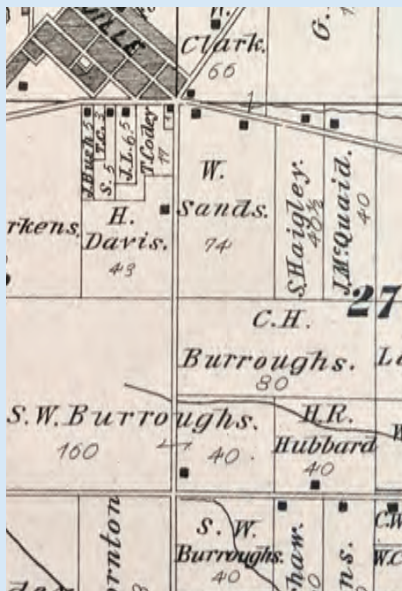 VILLE
Clark.
66
G.
J. Hugh 5
T.C. 3
S. 5
J.L. 6.5
T. Codey
17
W.
Sands.
74
S. Haigley.
J. McQuaid.
40
rkens.
H.
Davis.
43
27
C.H.
Burroughs.
80
S.W. Burroughs.
160
40
H.R.
Hubbard
40
W
S. W.
Burroughs.
40
rnton
haw.
ns.
C.W
W.C